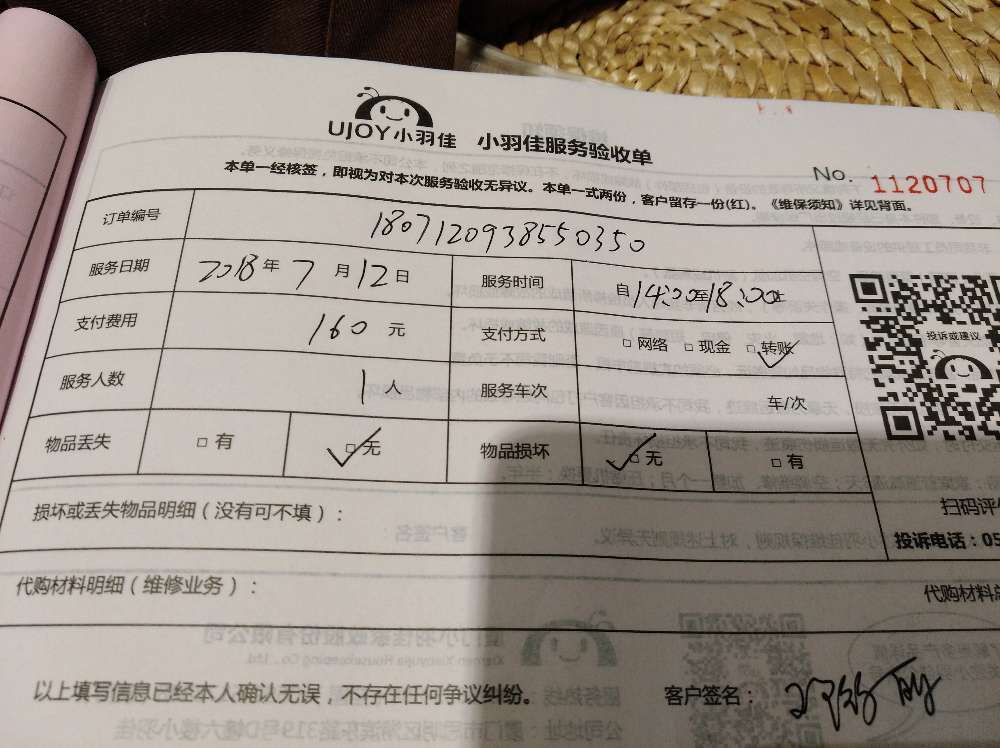 UJOY小羽佳 小羽佳服务验收单
No. 1120707
本单一经核签，即视为对本次服务验收无异议。本单一式两份，客户留存一份(红)。《维保须知》详见背面。
订单编号 1807120938550350
服务日期 2018年7月12日 服务时间 自14:00至18:00止
支付费用 160元 支付方式 □网络 □现金 □转账
投诉或建议
服务人数 1人 服务车次 车/次
物品丢失 □有 □无 物品损坏 □无 □有
损坏或丢失物品明细（没有可不填）：
扫码评
投诉电话：05
代购材料明细（维修业务）：
代购材料
以上填写信息已经本人确认无误，不存在任何争议纠纷。 客户签名：